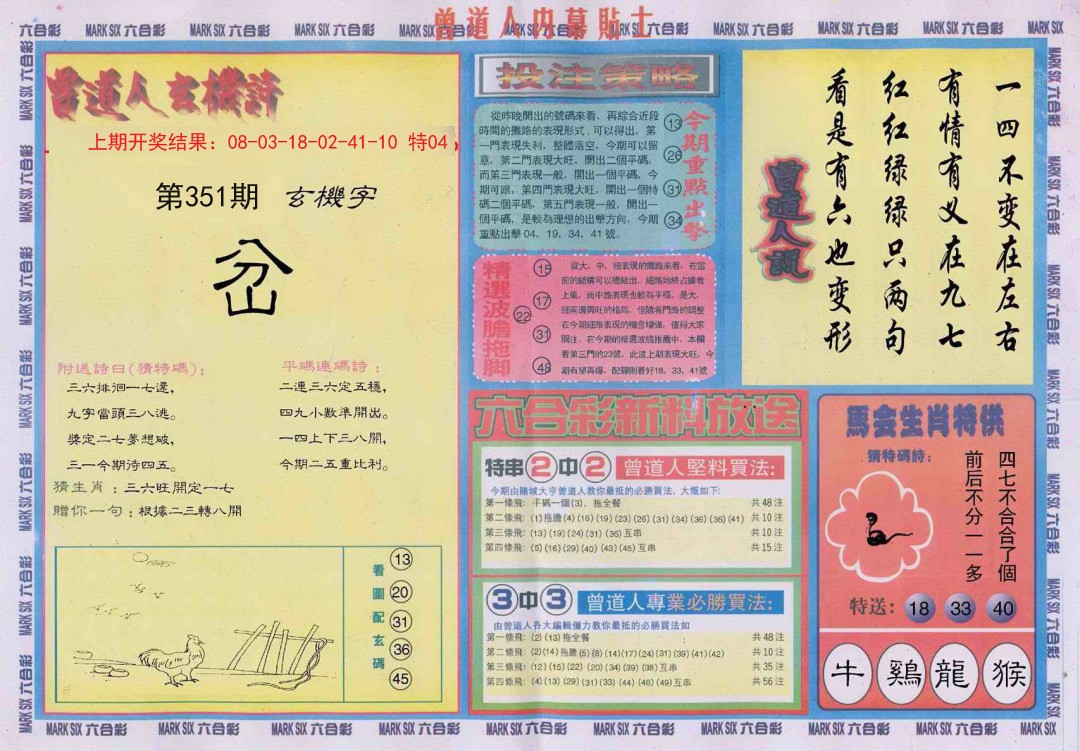 曾道人内幕貼士
MARK SIX 六合彩
曾道人玄機詩
上期开奖结果：08-03-18-02-41-10 特04
第351期 玄機字
岔
附送詩曰(猜特碼)：
三六排徊一七還，
九字當頭三八逃。
獎定二七夢想破，
三一今期待四五。
平碼連碼詩：
二連三六定五穩，
四九小數準開出。
一四上下三八開，
今期二五重比利。
猜生肖：三六旺開定一七
贈你一句：根據二三轉八開
看圖配玄碼
13
20
31
36
45
投注策略
從昨晚開出的號碼來看，再綜合近段
時間的攤路的表現形式，可以得出，第
一門表現失利，整體落空，今期可以留
意，第二門表現大旺，開出二個平碼，
而第三門表現一般，開出一個平碼，今
期可跟，第四門表現大旺，開出一個特
碼二個平碼，第五門表現一般，開出一
個平碼，是較為理想的出擊方向，今期
重點出擊04、19、34、41號。
13
26
31
34
今期重點出擊
精選波膽拖脚
15
17
22
31
48
從大、中、細表現的攤路來看，在當
前的結構可以總結出，細路始終占據着
上風，而中路表現也較為平穩，是大、
細兩邊興旺的格局，但隨着門路的調整
在今期細路表現的機會增強，值得大家
關注，在今期的精選波膽推薦中，本欄
看第三門的23號，此波上期表現大旺，今
期有望再爆，配腳則看好18、33、41號
曾道人說
一四不变在左右
有情有义在九七
红红绿绿只两句
看是有六也变形
六合彩新料放送
特串2中2 曾道人堅料買法：
今期由賭城大亨曾道人教你最抵的必勝買法，大慨如下：
第一條飛：平碼一個(3)，拖全餐 共48注
第二條飛：(1)拖膽(4)(16)(19)(23)(26)(31)(34)(36)(36)(41) 共10注
第三條飛：(13)(19)(24)(31)(36)互串 共10注
第四條飛：(5)(16)(29)(40)(43)(45)互串 共15注
3中3 曾道人專業必勝買法：
由曾道人各大編輯傾力教你最抵的必勝買法如
第一條飛：(2)(13)拖全餐 共48注
第二條飛：(2)(14)拖膽(5)(8)(14)(17)(24)(31)(39)(41)(42) 共10注
第三條飛：(12)(15)(22)(20)(34)(39)(38)互串 共35注
第四條飛：(4)(13)(29)(31)(33)(44)(46)(49)互串 共56注
馬会生肖特供
猜特碼詩：
四七不合合了個
前后不分一一多
特送：18 33 40
牛 鷄 龍 猴